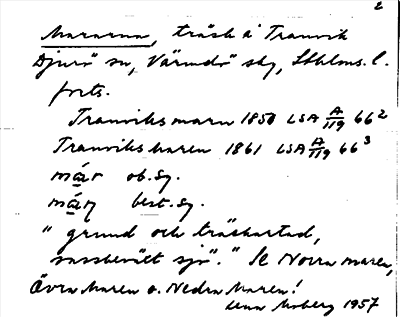 2
Mararna, träsk å Tranvik
Djurö sn, Värmdö skg, Sthlms. l.
forts.
Tranviks marn 1850 LSA A/119 66²
Tranviks haren 1861 LSA A/119 66³
mår ob. sg.
best. sg.
"grund och träskartad,
vassbevält sjö." Se Norra maren,
Övra Maren o. Nedra Maren!
Lena Moberg 1957